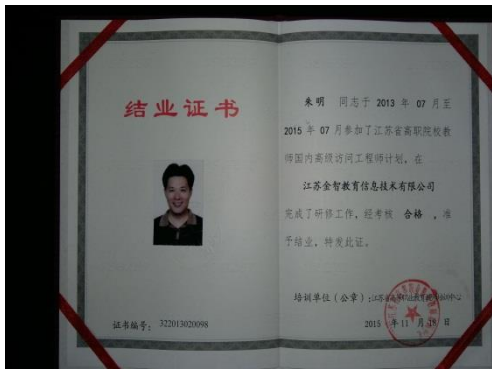 结业证书
证书编号： 322013020098
朱明 同志于 2013 年 07 月至
2015 年 07 月参加了江苏省高职院校教
师国内高级访问工程师计划，在
江苏金智教育信息技术有限公司
完成了研修工作，经考核 合格 ，准
予结业，特发此证。
培训单位（公章）：江苏省
2015 年 11 月 16 日